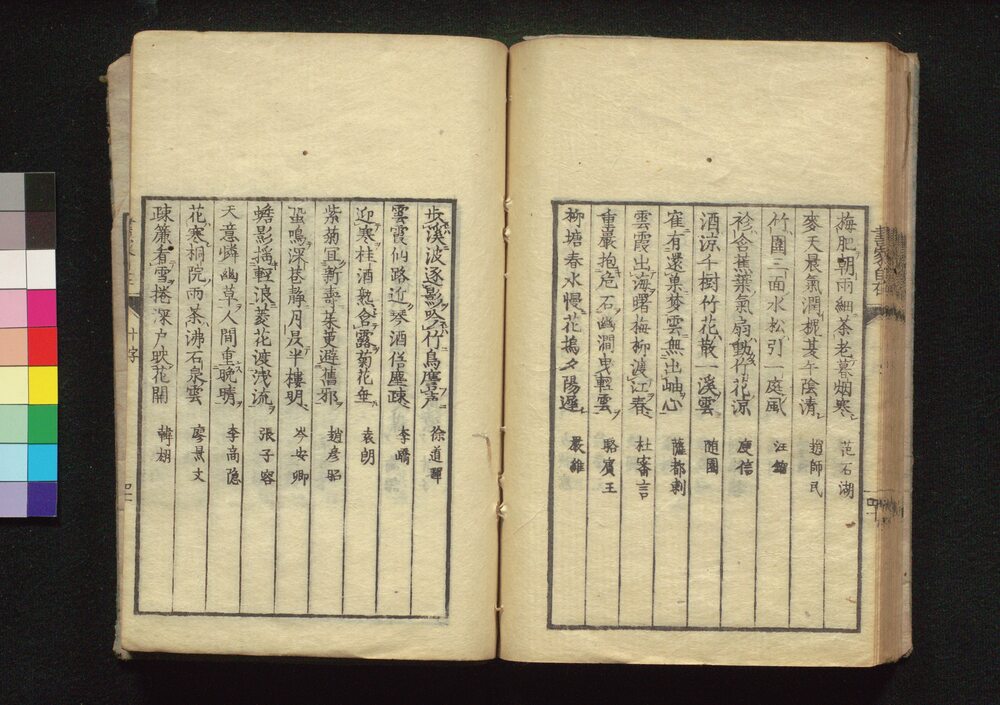 梅肥朝雨細茶老暮烟寒 范石湖
麥天晨氣潤槐夏午陰清 趙師民
竹圍三面水松引一庭風 汪
衫含蕉葉氣扇動竹花涼 庾信
酒涼千樹竹花散一溪雲 随園
雀有還巢夢雲無出岫心 薩都剌
雲霞出海曙梅柳渡江春 杜審言
重巖抱危石幽澗曳輕雲 駱賓王
柳塘春水慢花塢夕陽遲 嚴維
步溪波逐影吟竹鳥譍声 徐道暉
雲霞仙路近琴酒俗塵疎 李嶠
迎寒桂酒熟含露菊花垂 袁朗
紫菊宜新壽茱萸避舊邪 趙彦昭
蛩鳴深巷靜月晟半樓明 岑安卿
蟾影揺輕浪菱花渡浅流 張子容
天意憐幽草人間重晩晴 李商隠
花寒桐院雨茶沸石泉雲 廖景文
疎簾看雪捲深户映花關 韓翃
十字
四一